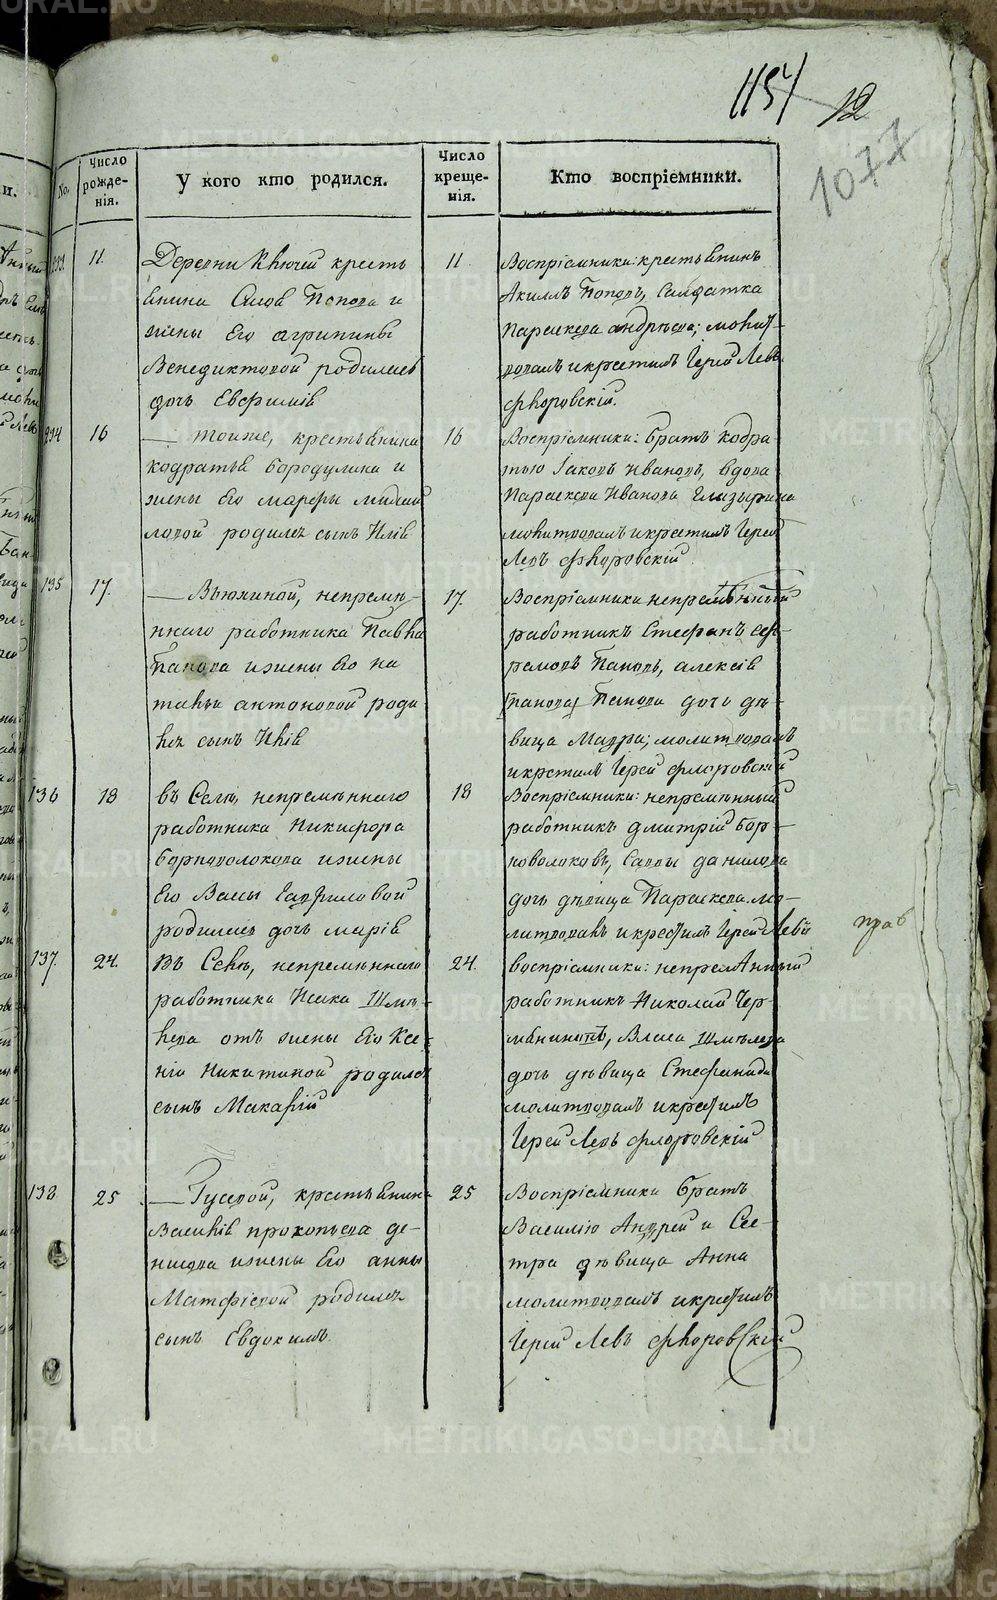 1154 12
1077
No.
Число рожде-нія.
У кого кто родился.
Число креще-нія.
Кто воспріемники.
11
Деревни Ключей кресть
янина Сава Попова и
жены Его агрипины
Венедиктовой родилась
дочь Евфимія
11
Воспріемники: крестьянинъ
Акилъ Поповъ, Салдатка
Параскева андрѣева; молит-
вовалъ и крестилъ Іерей Левъ
флоровскій.
16
— тоиже, крестьянина
кодратья бородулина и
жены Его марфы михаи
ловой родился сынъ Илія
16
Воспріемники: братъ кодра-
тью Іаковъ ивановъ, вдова
Параскева Иванова Глазырина
молитвовалъ и крестилъ Іерей
Левъ флоровскій
135
17.
— Вьюхиной, непремѣ-
ннаго работника Павла
Панова и жены Его на
тальи антоновой роди
лся сынъ Илія
17.
Воспріемники непремѣнный
работникъ Стефанъ Еф-
ремовъ Пановъ, алексія
Панова Панова дочь дѣ-
вица Мавра; молитвовалъ
и крестилъ Іерей флоровскій
136
18
въ Селѣ, непремѣннаго
работника Никифора
Борноволокова и жены
Его Васы Гавриловой
родилась дочь марія
18
Воспріемники: непремѣнный
работникъ дмитрій Бор-
новолоковъ, Савы данилова
дочь дѣвица Параскева мо-
литвовалъ и крестилъ Іерей Левъ
прав
137.
24.
Въ Селѣ, непремѣннаго
работника Исака Шмѣ-
лева отъ жены Его Ксе-
ніи Никитиной родился
сынъ Макарій
24.
воспріемники: непремѣнный
работникъ Николай Чер-
, Власа Шмѣлева
дочь дѣвица Стефанида
молитвовалъ и крестилъ
Іерей Левъ флоровскій
138
25
— Гусевой, крестьянина
Василія прокопьева де-
нисова и жены Его анны
Матфіевой родился
сынъ Евдокимъ
25
Воспріемники братъ
Василію Андрей и Сес-
тра дѣвица Анна
молитвовалъ и крестилъ
Іерей Левъ флоровскій
METRIKI.GASO-URAL.RU